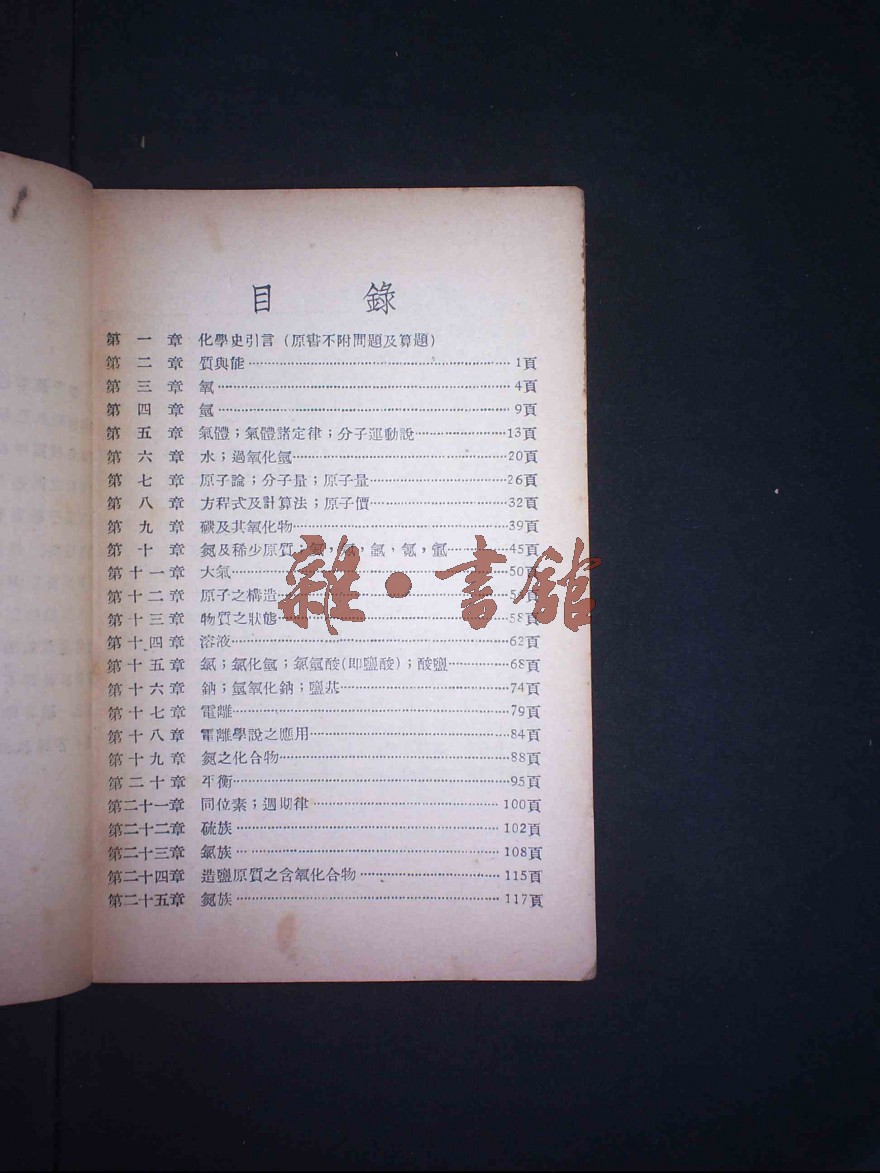 目 錄
第一章 化學史引言(原書不附問題及算題)
第二章 質與能……1頁
第三章 氧……4頁
第四章 氫……9頁
第五章 氣體;氣體諸定律;分子運動說……13頁
第六章 水;過氧化氫……20頁
第七章 原子論;分子量;原子量……26頁
第八章 方程式及計算法;原子價……32頁
第九章 碳及其氧化物……39頁
第十章 氮及稀少原質;……45頁
第十一章 大氣……50頁
第十二章 原子之構造……頁
第十三章 物質之狀態……58頁
第十四章 溶液……62頁
第十五章 氯;氯化氫;氯氫酸(即鹽酸);酸鹽……68頁
第十六章 鈉;氫氧化鈉;鹽基……74頁
第十七章 電離……79頁
第十八章 電離學說之應用……84頁
第十九章 氮之化合物……88頁
第二十章 平衡……95頁
第二十一章 同位素;週期律……100頁
第二十二章 硫族……102頁
第二十三章 氯族……108頁
第二十四章 造鹽原質之含氧化合物……115頁
第二十五章 氮族……117頁
雜·書館